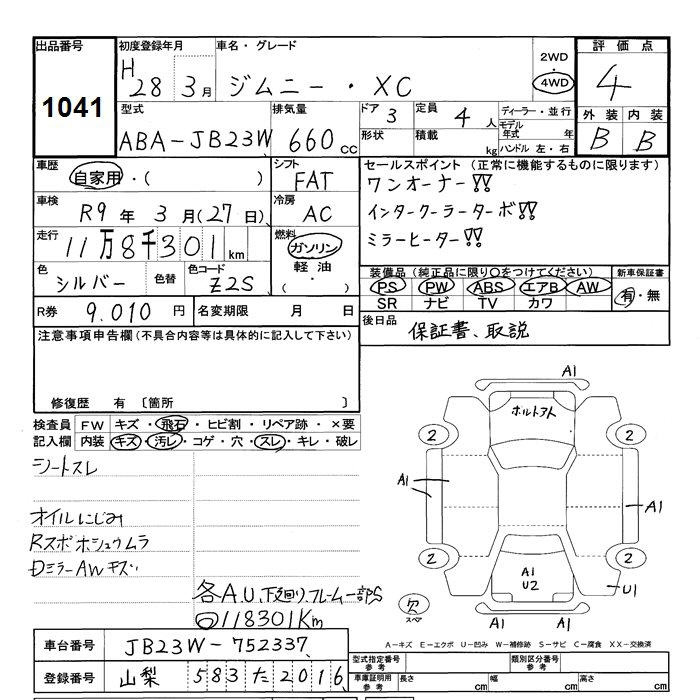 出品番号 1041
初度登録年月 H28 3月
車名・グレード ジムニー・XC
2WD
4WD
評価点 4
外装 内装
B B
型式 ABA-JB23W
排気量 660cc
ドア 3
形状
定員 4人
積載 kg
ディーラー・並行
モデル年式 年
ハンドル 左・右
車歴 自家用・( )
車検 R9年3月(27日)
走行 11万8千301km
色 シルバー 色替
色コード Z2S
シフト FAT
冷房 AC
燃料 ガソリン
軽油
( ・ )
R券 9.010円
名変期限 月 日
セールスポイント (正常に機能するものに限ります)
ワンオーナー!!
インタークーラーターボ!!
ミラーヒーター!!
装備品(純正品に限り〇をつけてください)
PS PW ABS エアB AW
SR ナビ TV カワ
新車保証書
有・無
後日品 保証書、取説
注意事項申告欄(不具合内容等は具体的に記入して下さい)
修復歴 有 〔箇所
検査員記入欄
FW キズ・飛石・ヒビ割・リペア跡・×要
内装 キズ・汚レ・コゲ・穴・スレ・キレ・破レ
シートスレ
オイルにじみ
Rスポホシュウムラ
DミラーAWキズ
各A.U.下廻リ、フレーム一部S
118301Km
A1
ボルトアト
2 2
A1
A1
2 2
A1
U2
U1
欠
スペア
A1
A-キズ E-エクボ U-凹み W-補修跡 S-サビ C-腐食 XX-交換済
車台番号 JB23W-752337
登録番号 山梨 583 た 2016
型式指定番号 参考
類別区分番号 参考
車庫証明用 参考 長さ cm 幅 cm 高さ cm